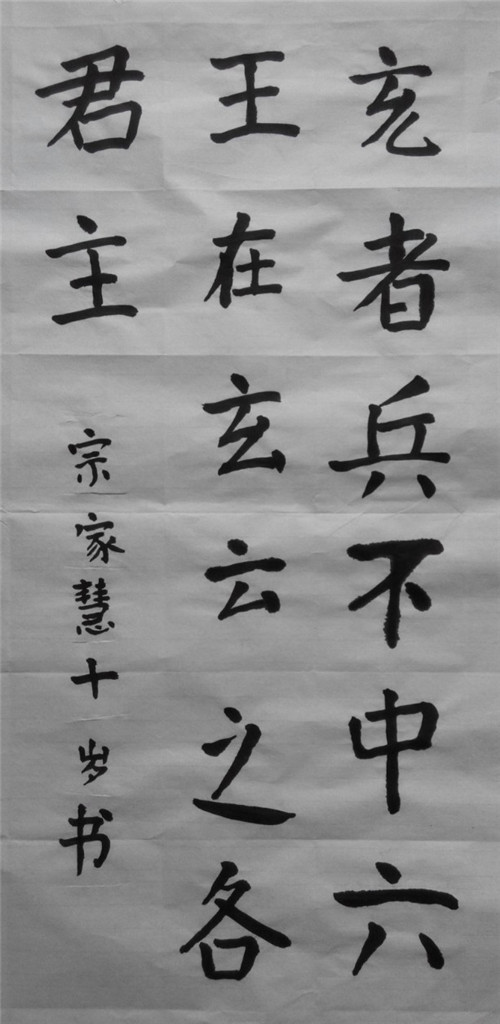 玄者兵不中六
王在玄云之各
君主
宗家慧十岁书